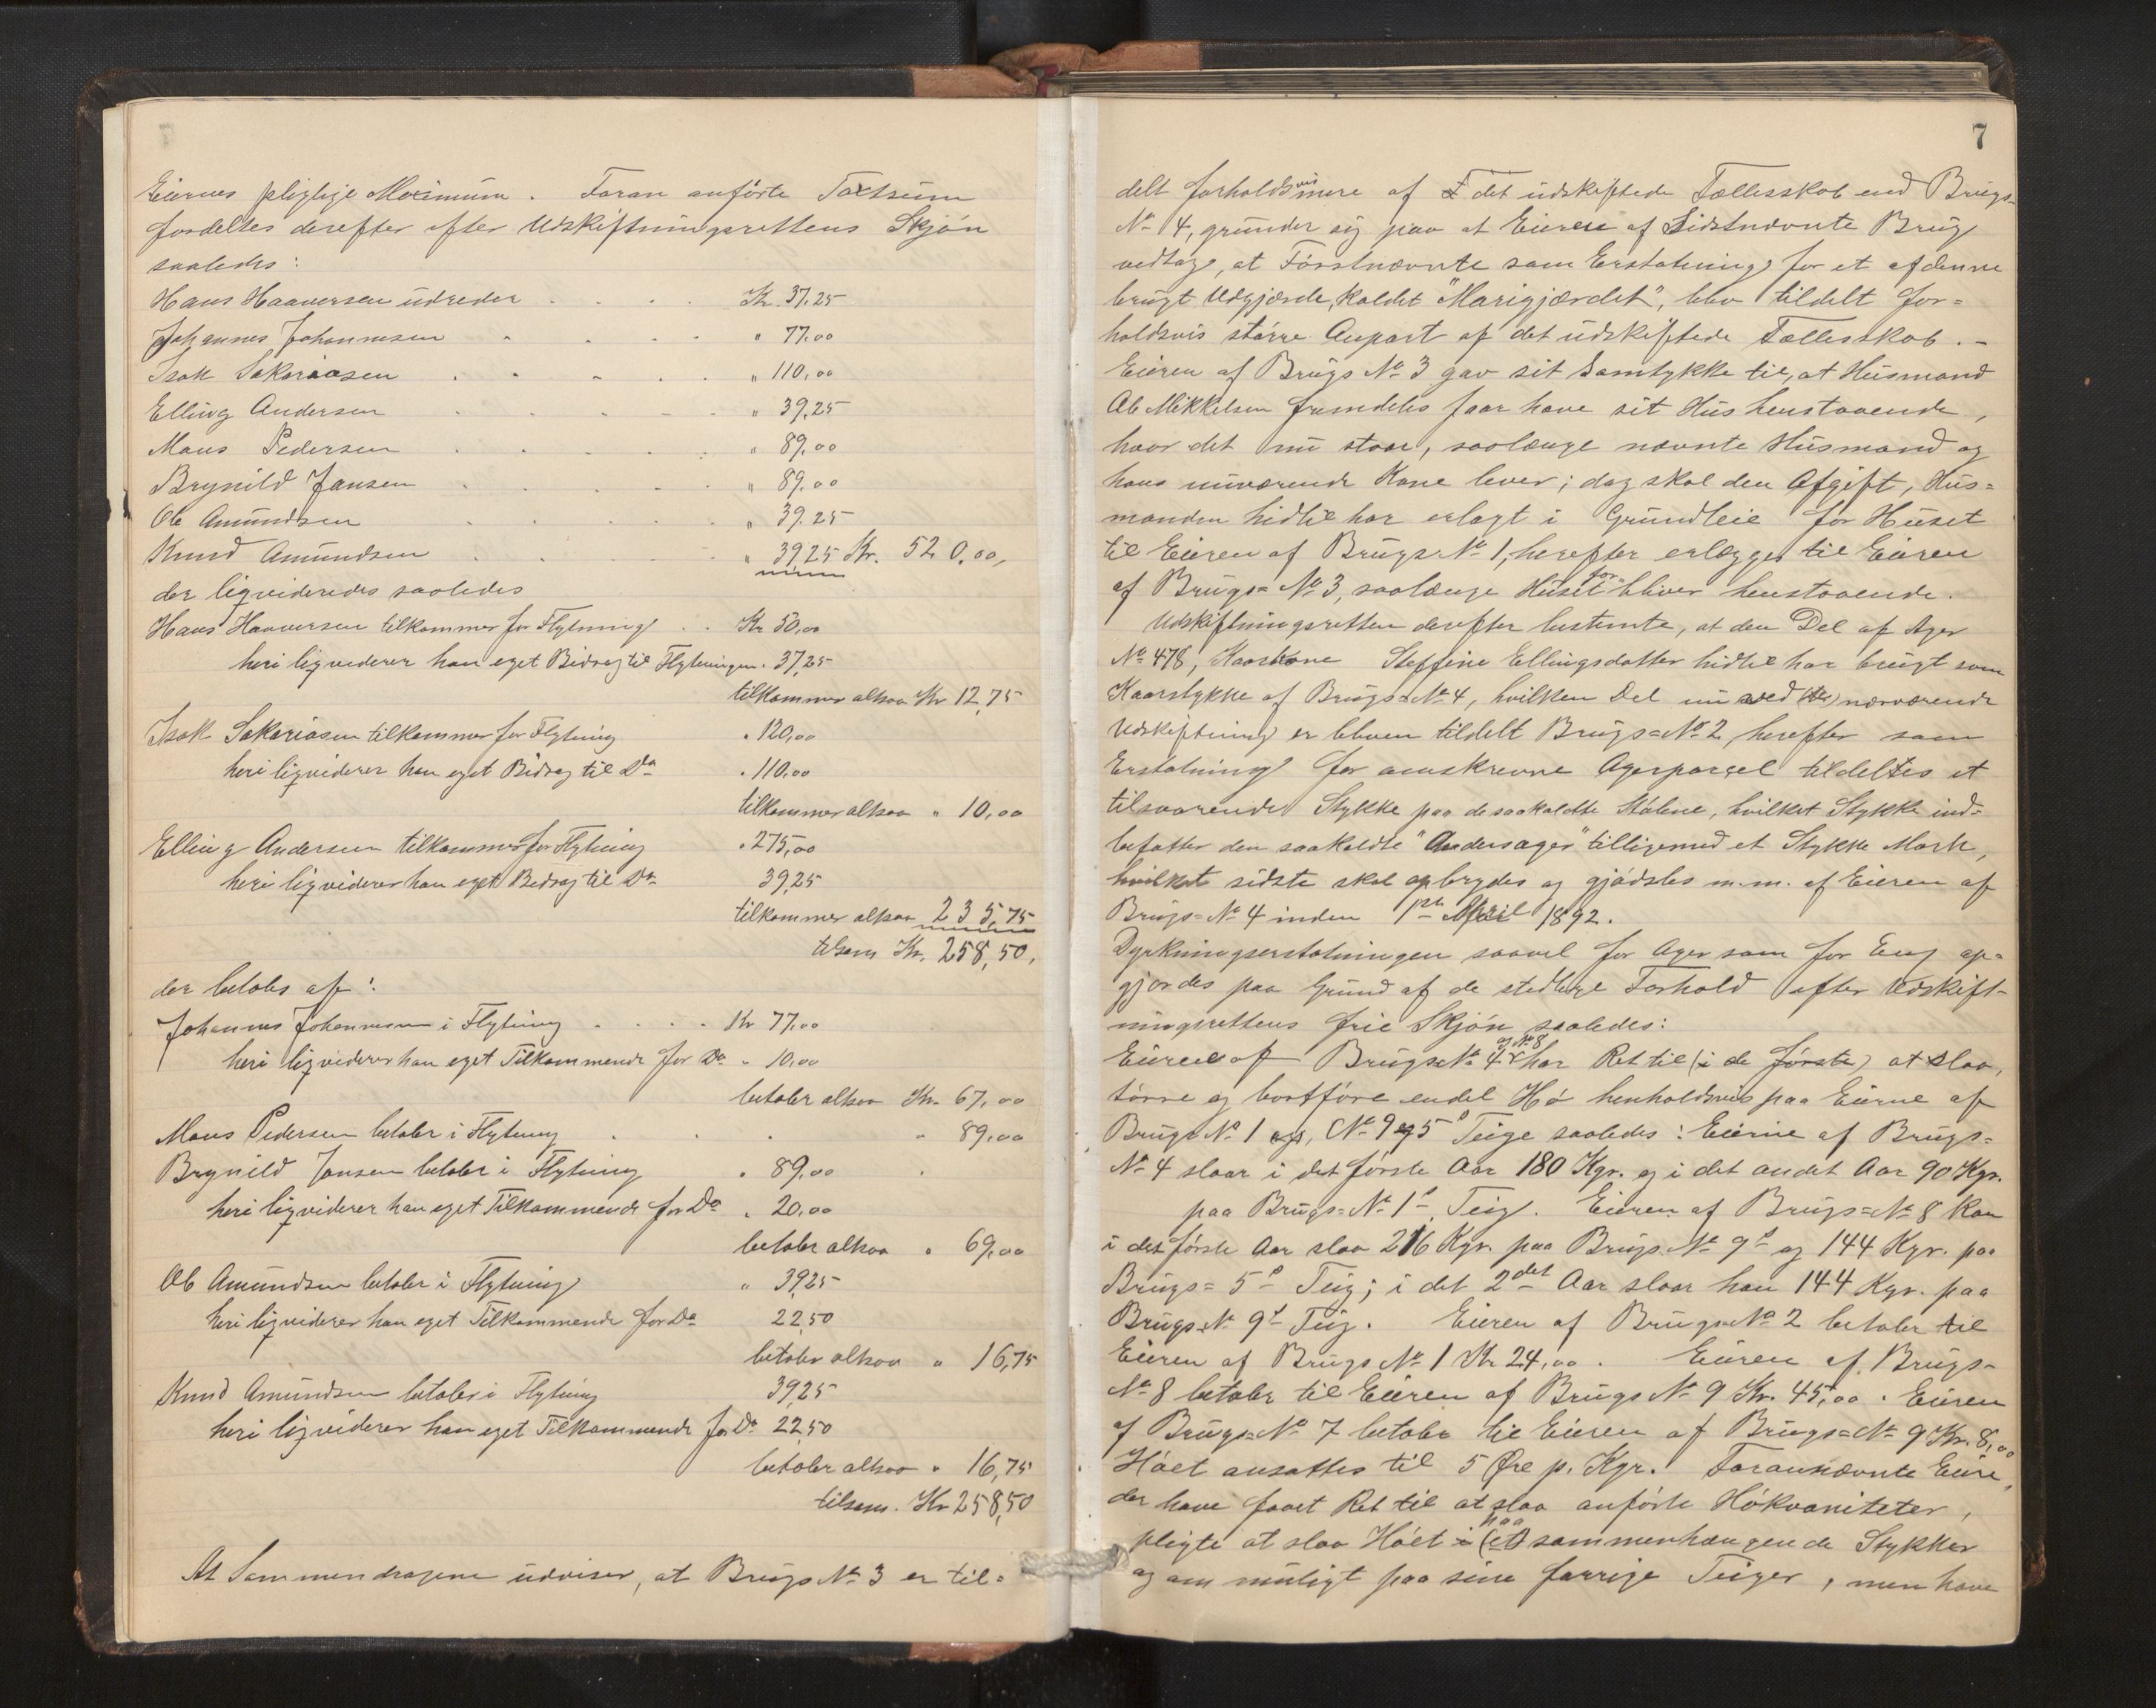 Eiernes pligtige Maximum. Foran anførte Taxtsum
fordeltes derefter efter Udskiftningsrettens Skjøn
saaledes:
Hans Haaversen udreder . . . . Kr. 37.25
Johannes Johannesen . . . . " 77.00
Isak Sakariasen . . . . . " 110,00
Elling Andersen . . . . . " 39,25
Mons Pedersen . . . . . " 89,00
Brynild Jansen . . . . . " 89.00
Ole Amundsen . . . . . " 39.25
Knud Amundsen . . . . . " 39,25 Kr. 520.00,
der liqvideredes saaledes
Hans Haaversen tilkommer for Flytning . . Kr 50,00
heri liqviderer han eget Bidrag til Flytningen . 37,25
tilkommer altsaa Kr 12,75
Isak Sakariasen tilkommer for Flytning " 120,00
heri liqviderer han eget Bidrag til Do " 110,00
tilkommer altsaa " 10,00
Elling Andersen tilkommer for Flytning " 275,00
heri liqviderer han eget Bidrag til Do 39,25
tilkommer altsaa 235,75
tilsam Kr. 258,50,
der betales af:
Johannes Johannesen i Flytning . . . . Kr 77,00
heri liqviderer han eget Tilkommende for Do " 10,00
betaler altsaa Kr. 67,00
Mons Pedersen betaler i Flytning . . . " 89,00
Brynild Jansen betaler i Flytning " 89,00
heri liqviderer han eget Tilkommende for Do " 20,00
betaler altsaa " 69,00
Ole Amundsen betaler i Flytning " 39,25
heri liqviderer han eget Tilkommende for Do 22,50
betaler altsaa " 16,75
Knud Amundsen betaler i Flytning 39,25
heri liqviderer han eget Tilkommende for Do 22,50
betaler altsaa " 16,75
tilsam. Kr 258,50
At Sammendragene udviser, at Brugs No 3 er til=
7
delt forholdsvis mere af det udskiftede Fællesskab end Brugs-
No 4, grunder sig paa at Eieren af Sidstnævnte Brug
vedtog, at Førstnævnte som Erstatning for et af denne
brugt Udgjærde, kaldet "Marigjærdet", blev tildelt for=
holdsvis større Anpart af det udskiftede Fællesskab. -
Eieren af Brugs No 3 gav sit Samtykke til, at Husmand
Ole Mikkelsen fremdeles faar have sit Hus henstaaende,
hvor det nu staar, saalænge nævnte Husmand og
hans nuværende Kone lever; dog skal den Afgift, Hus=
manden hidtil har erlagt i Grundleie for Huset
til Eieren af Brugs No 1, herefter erlægges til Eieren
af Brugs= No 3, saalænge Huset for bliver henstaaende.
Udskiftningsretten derefter bestemte, at den Del af Ager
No 478, Kaarkone Steffine Ellingsdatter hidtil har brugt som
Kaarstykke af Brugs=No 4, hvilken Del nu ved (de) nærværende
Udskiftning er bleven tildelt Brugs=No 2, herefter som
Erstatning for omskrevne Agerparcel tildeltes et
tilsvarende Stykke paa de saakaldte Stølene, hvilket Stykke ind=
befatter den saakaldte "Andersager" tilligemed et Stykke Mark,
hvilket sidste skal opbrydes og gjødsles m.m. af Eieren af
Brugs=No 4 inden 1ste April 1892.
Dyrkningserstatningen saavel for Ager som for Eng op=
gjordes paa Grund af de stedlige Forhold efter Udskift-
ningsrettens frie Skjøn saaledes:
Eieren af Brugs No 4 og No 8 har Ret til (i de første) at slaa,
tørre og bortføre endel Hø henholdsvis paa Eierne af
Brugs No 1 og, No 9 og 5s Teige saaledes: Eierne af Brugs=
No 4 slaar i det første Aar 180 Kgr. og i det andet Aar 90 Kgr.
paa Brugs=No 1s Teig. Eieren af Brugs=No 8 kan
i det første Aar slaa 216 Kgr. paa Brugs No 9s og 144 Kgr. paa
Brugs= 5s Teig; i det 2det Aar slaar han 144 Kgr. paa
Brugs No 9s Teig. Eieren af Brugs No 2 betaler til
Eieren af Brugs No 1 Kr 24,00. Eieren af Brugs-
No 8 betaler til Eieren af Brugs No 9 Kr. 45,00. Eieren
af Brugs=No 7 betaler til Eieren af Brugs=No 9 Kr. 8,00
Høet ansattes til 5 Øre p. Kgr. Forannævnte Eiere,
der have faaet Ret til at slaa anførte Høkvaniteter,
pligte at slaa Høet i (et) paa sammenhængende Stykker
og om muligt paa sine forrige Teiger, men have